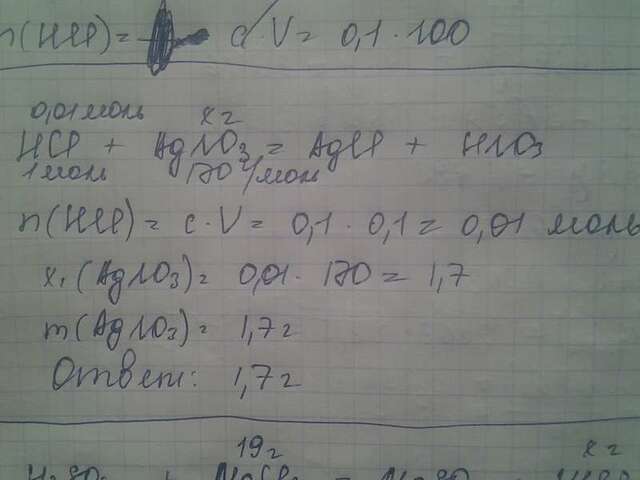 n(HCl) = c·V = 0,1·100
0,01 моль x г
HCl + AgNO₃ = AgCl + HNO₃
1 моль 170 г/моль
n(HCl) = c·V = 0,1·0,1 = 0,01 моль
x, (AgNO₃) = 0,01·170 = 1,7
m(AgNO₃) = 1,7 г
Ответ: 1,7 г
19 г x г